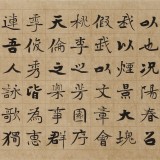 以也況陽春召
我以煙景大塊
假我以文章會
桃花之芳園序
天倫之樂事群
季俊秀皆為惠
連吾人詠歌獨